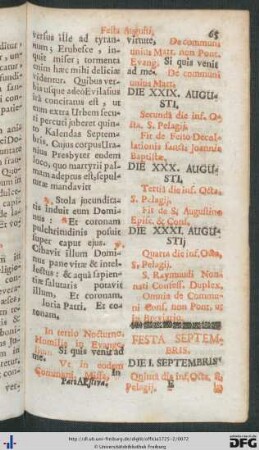 Festa Augusti,
65
versus ille ad tyran-
num; Erubesce, in-
quit miser; tormenta
enim hæc mihi deliciæ
videntur. Quibus ver-
bis usque adeò Evilasius
irâ concitatus est, ut
eum extra Urbem secu-
ri percuti juberet quin-
to Kalendas Septem-
bris. Cujus corpus Ira-
nius Presbyter eodem
loco, quo martyrii pal-
mam adeptus est, sepul-
turæ mandavit
℣. Stola jucundita-
tis induit eum Domi-
nus: * Et coronam
pulchritudinis posuit
super caput ejus. ℣.
Cibavit illum Domi-
nus pane vitæ & intel-
lectus: & aquâ sapien-
tiæ salutaris potavit
illum. Et coronam.
Gloria Patri. Et co-
ronam.
In tertio Nocturno.
Homilia in Evange-
lium Si quis venit ad
me. Ut in eodem
Communi. Missa, In
Pars Æstiva.
virtute, De communi
unius Mart. non Pont.
Evang. Si quis venit
ad me. De communi
unius Mart.
DIE XXIX. AUGU-
STI,
Secunda die inf. O-
cta. S. Pelagij.
Fit de Festo Decol-
lationis sancti Joannis
Baptistæ.
DIE XXX. AUGU-
STI,
Tertia die inf. Octa.
S. Pelagij.
Fit de S. Augustino
Episc. & Conf.
DIE XXXI. AUGU-
STI;
Quarta die inf. Octa,
S. Pelagij.
S. Raymundi Non-
nati Confess. Duplex.
Omnia de Commu-
ni Conf. non Pont. ut
in Breviario.
FESTA SEPTEM-
BRIS.
DIE I. SEPTEMBRIS
Quinta die inf. Octa, S.
Pelagij,
http://dl.ub.uni-freiburg.de/diglit/officia1725-2/0072
© Universitätsbibliothek Freiburg
gefördert durch die
DFG